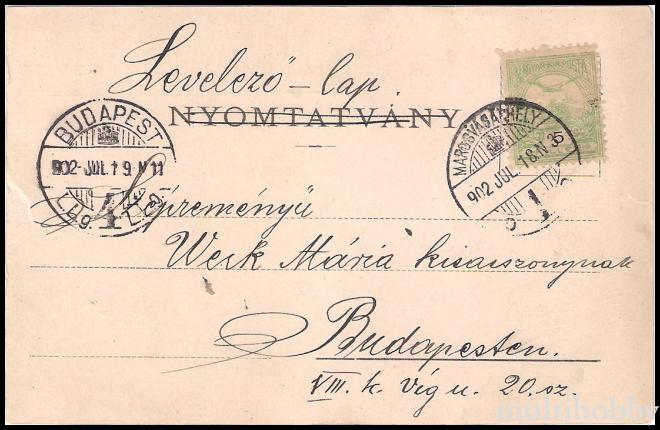 Levelező-lap.
NYOMTATVÁNY
MAGYAR KIR. POSTA
BUDAPEST
902-JUL. 19. N 11
4
MAROSVÁSÁRHELY
902 JUL. 18. N 35
Népreményű
Werk Mária kisasszonynak
Budapesten.
VIII. k. Víg u. 20. sz.
multihobby